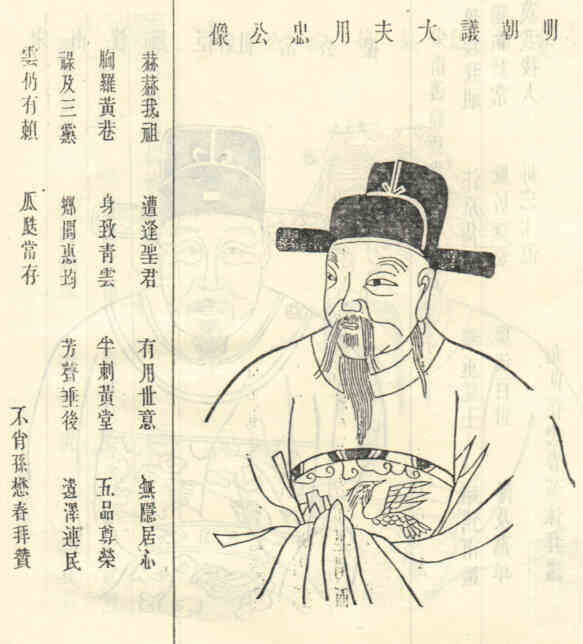 明朝議大夫用忠公像
赫赫我祖 遭逢聖君 有用世意 無隱居心
胸羅黃卷 身致青雲 半刺黃堂 五品尊榮
祿及三黨 鄉閭惠均 芳聲垂後 遺澤連民
雲仍有賴 瓜瓞常存
不肖孫懋春拜贊